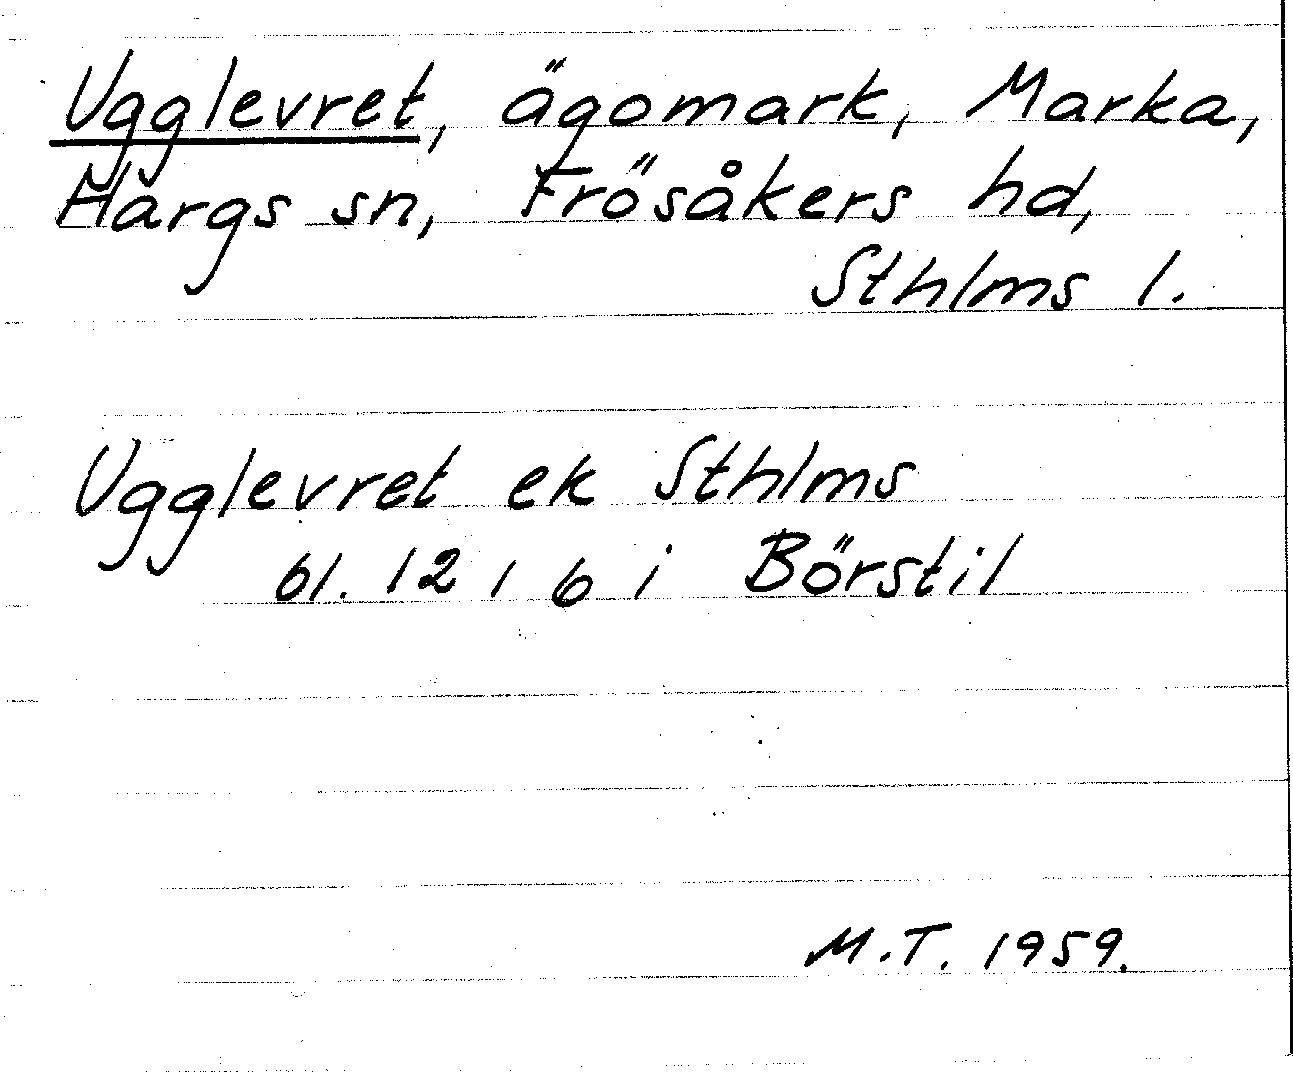 Ugglevret, ägomark, Marka,
Hargs sn, Frösåkers hd,
Sthlms l.
Ugglevret ek Sthlms
bl. 12, 6 i Börstil
M.T. 1959.